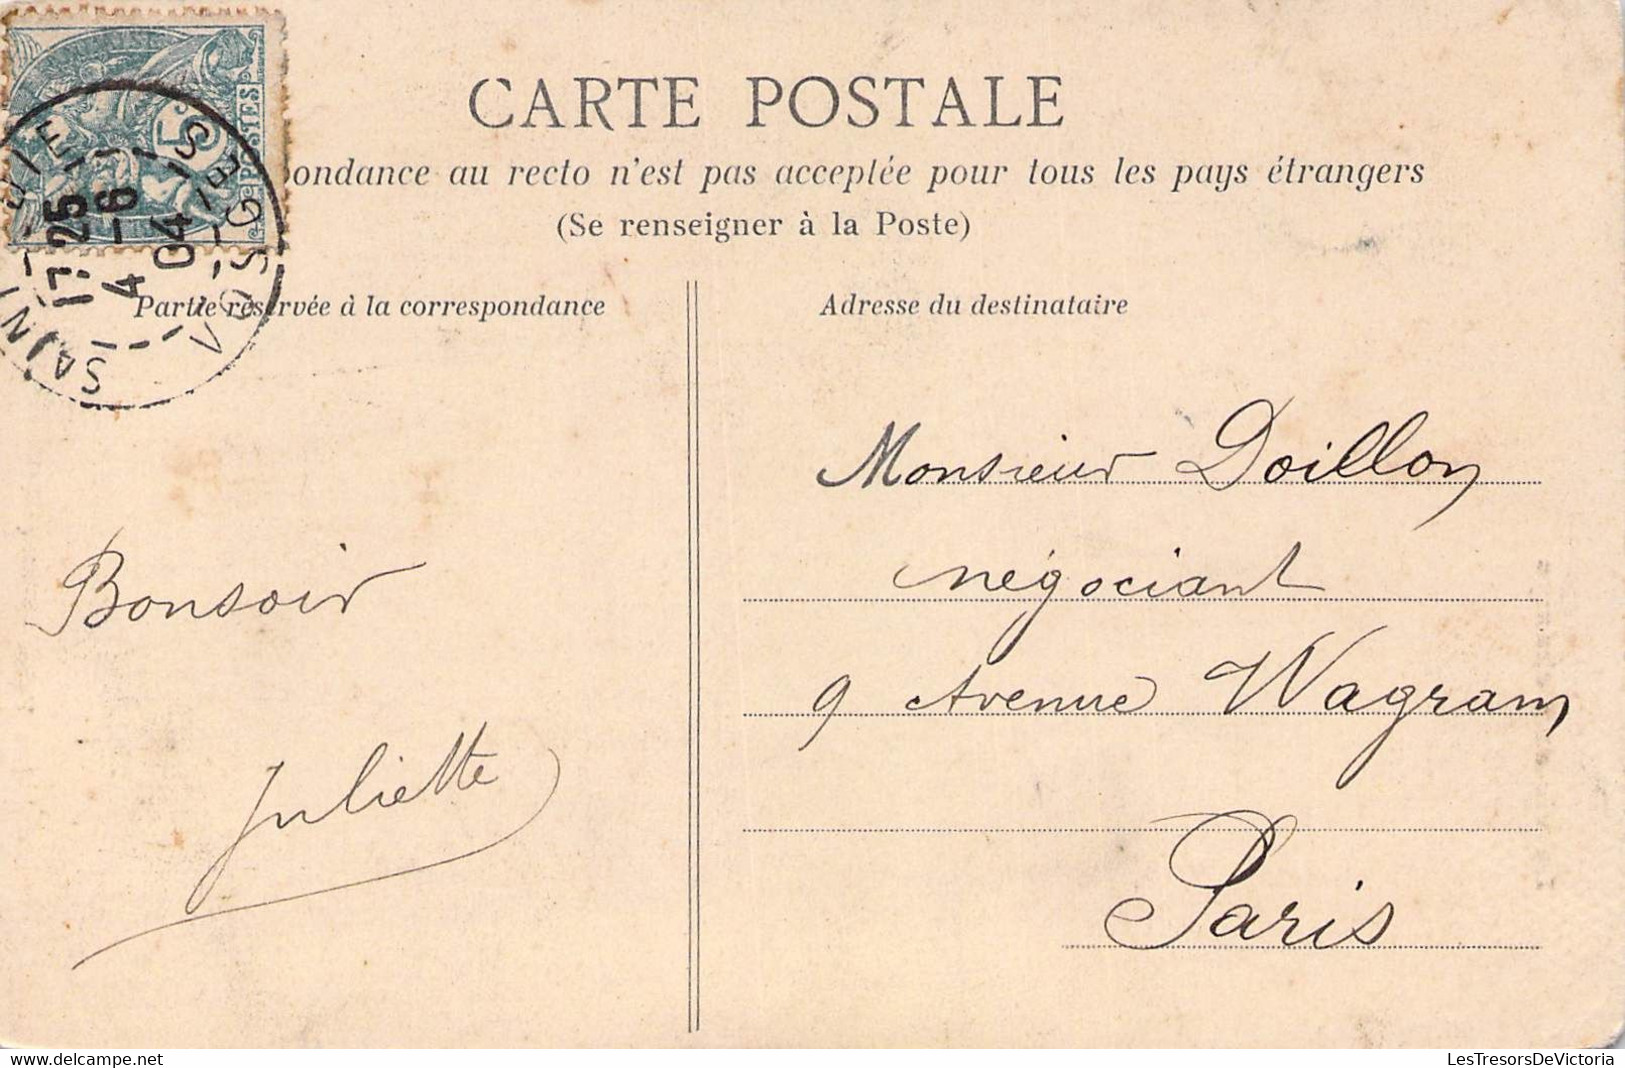 CARTE POSTALE
ondance au recto n'est pas acceptée pour tous les pays étrangers
(Se renseigner à la Poste)
5c
POSTES
SAINT-DIÉ
VOSGES
17 25
4 -6
04
Partie réservée à la correspondance
Adresse du destinataire
Bonsoir
Juliette
Monsieur Doillon
négociant
9 Avenue Wagram
Paris
delcampe.net
LesTresorsDeVictoria